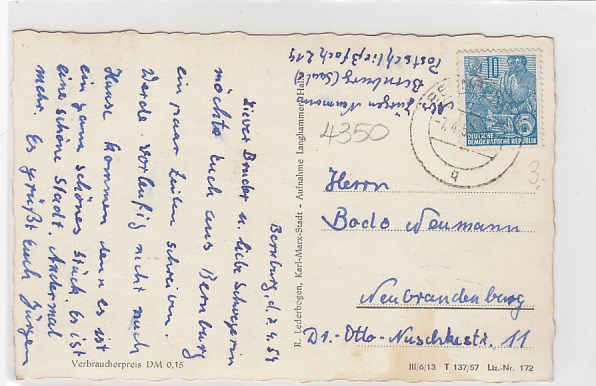 Bernburg, d. 7.4.59
Lieber Bruder u. liebe Schwägerin
möchte Euch aus Bernburg
ein paar Zeilen schreiben.
Werde vorläufig nicht nach
Hause kommen denn es ist
ein ganz schönes Stück. Es ist
eine schöne Stadt. Andermal
mehr. Es grüßt Euch Jürgen
Verbraucherpreis DM 0,15
R. Lederbogen, Karl-Marx-Stadt - Aufnahme Langhammer, Halle
Abs. Jürgen Neumann
Bernburg (Saale)
Postschließfach 214
10
5
DEUTSCHE
DEMOKRATISCHE REPUBLIK
q
4350
3,
Herrn
Bodo Neumann
Neubrandenburg
Dr.-Otto-Nuschkestr. 11
III/6/13 T 137/57 Liz.-Nr. 172